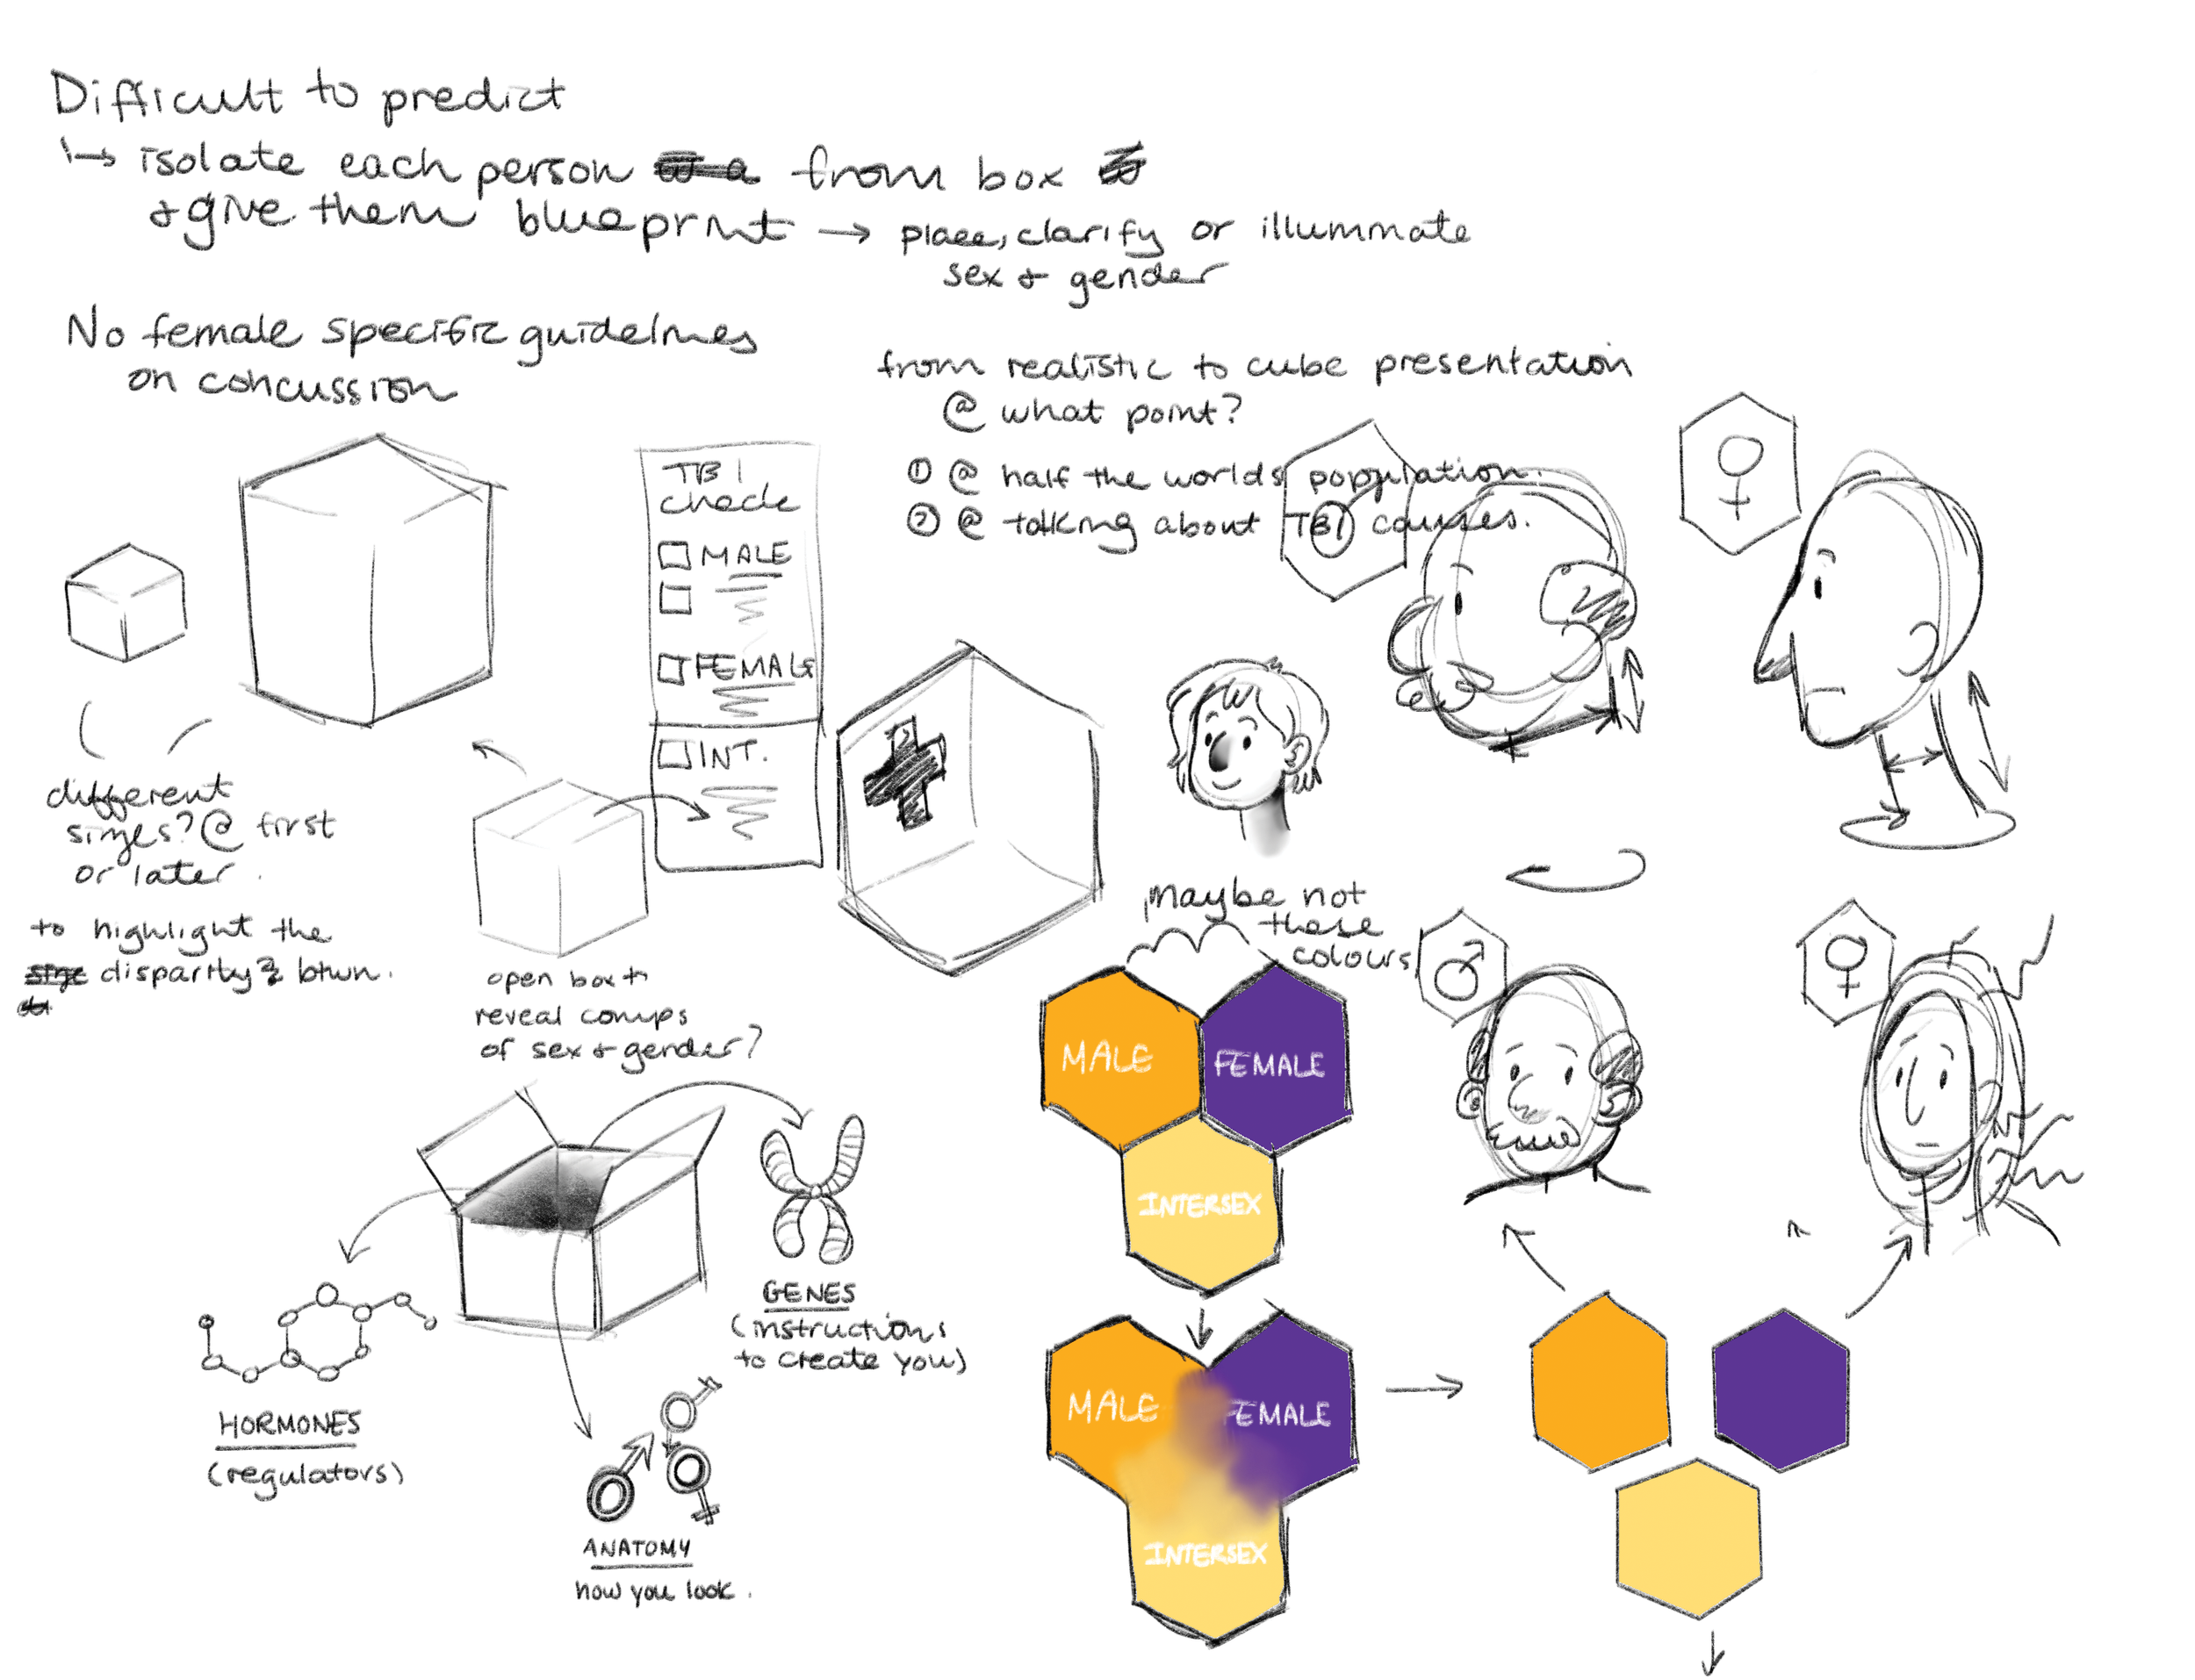 Difficult to predict
↳ isolate each person from box
& give them blueprint → place, clarify or illuminate
sex & gender
No female specific guidelines
on concussion
from realistic to cube presentation
@ what point?
① @ half the worlds population.
② @ talking about TBI courses.
TBI
check
MALE
FEMALE
INT.
different
sizes? @ first
or later.
to highlight the
disparity btwn.
open box to
reveal comps
of sex & gender?
maybe not
these
colours
MALE
FEMALE
INTERSEX
GENES
(instructions
to create you)
HORMONES
(regulators)
ANATOMY
how you look.
MALE
FEMALE
INTERSEX